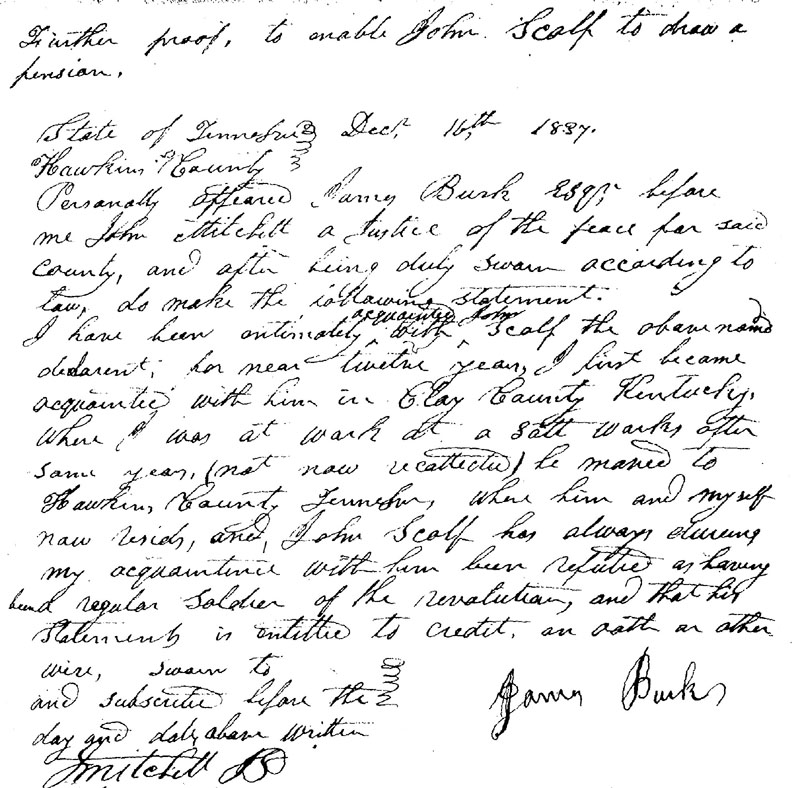 Further proof, to enable John Scalf to draw a
pension.
State of Tennessee Decr 16th 1837.
Hawkins County
Personally appeared James Burk Esqr before
me John Mitchell a Justice of the peace for said
county, and after being duly sworn according to
law, do make the following statement.
I have been intimately acquainted with John Scalf the above named
declarent, for near twelve years, I first became
acquainted with him in Clay County Kentucky,
where I was at work at a salt works after
some years, (not now recollected) he moved to
Hawkins County Tennessee, where him and myself
now resids, and, John Scalf has always during
my acquaintince with him been reputed as having
been a regular soldier of the revolution, and that his
statements is entitled to credit, on oath or other
wise, sworn to
and subscribed before the
day and date above written
James Burk
J Mitchell JP